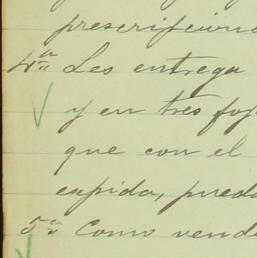 prescripcion
4ª Les entrega
y en tres foj
que con el
expida, pued
5ª Como vend